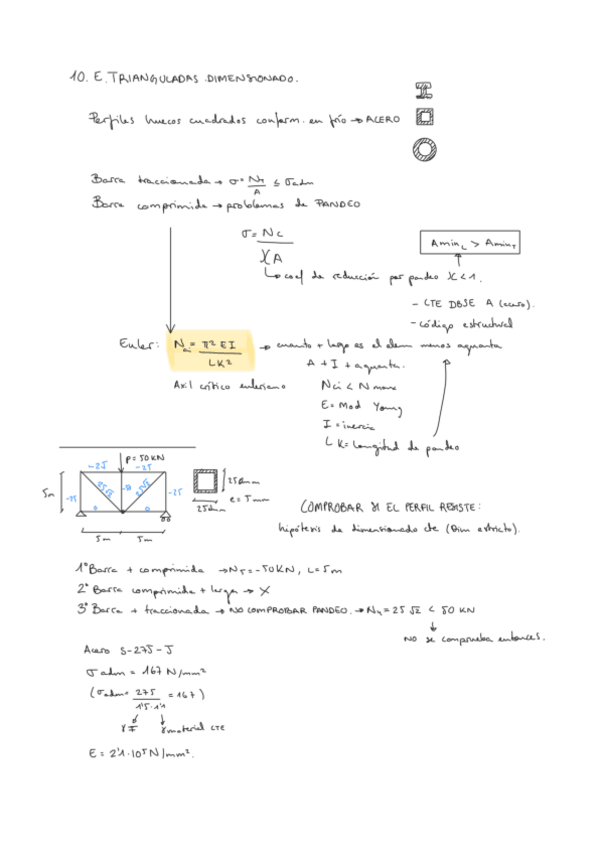 10. E. TRIANGULADAS. DIMENSIONADO.
Perfiles huecos cuadrados conform. en frío → ACERO
Barra traccionada → σ = NT / A ≤ σadm
Barra comprimida → problemas de PANDEO
σ = Nc / χA
Amin c > Amin T
↳ coef de reducción por pandeo χ < 1.
- CTE DBSE A (acero).
- código estructural
Euler: Ncr = π² EI / LK² → cuanto + largo es el elem menos aguanta
A + I + aguanta.
Axil crítico euleriano
Nci < Nmax
E = Mod Young
I = inercia
LK = longitud de pandeo
P = 50 KN
-25 -25
5m -25 25√2 -50 25√2 -25
0 0
5m 5m
250mm
250mm e = 5mm
COMPROBAR SI EL PERFIL RESISTE:
hipótesis de dimensionado cte (Dim estricto).
1º Barra + comprimida → N5 = -50KN, L = 5m
2º Barra comprimida + larga → X
3º Barra + traccionada → NO COMPROBAR PANDEO. → N4 = 25√2 < 50 KN
↓
NO se comprueba entonces.
Acero S-275-J
σadm = 167 N/mm²
(σadm = 275 / 1'5·1'1 = 167)
γF γmaterial CTE
E = 2'1·10⁵ N/mm².